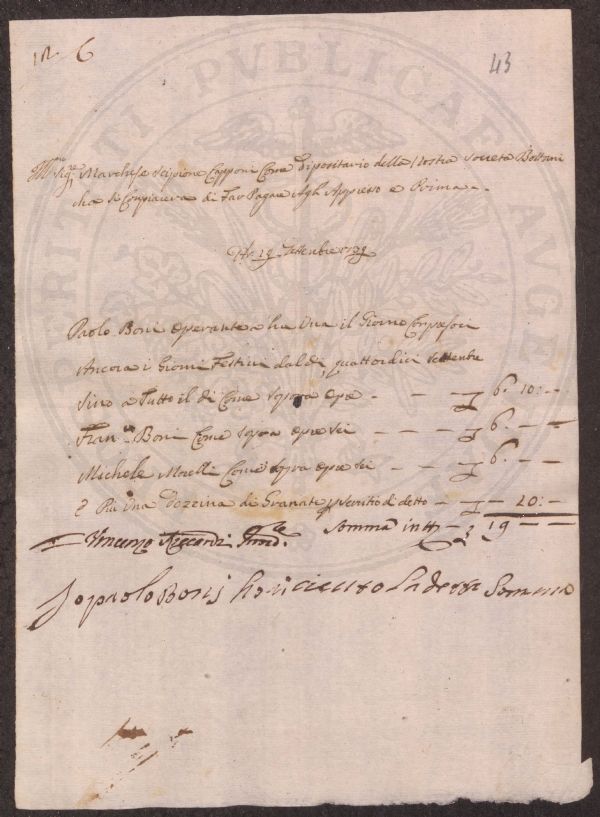 N.º 6
43
Ill.mo Sig.re Marchese Scipione Capponi Come Dipositario della Nostra Società Bottani
cha Si Conpiacera di Far Pagare Agli Appresso e Prima
A dì 19 Settenbre 1739
Paolo Boni Operante a lira Una il Giorno Conpresoci
Ancora i Giorni Festivi dal dì quattordici Settenbre
Sino a Tutto il dì Come Sopra Opre - - - £ 6. 10: -
Fran.co Boni Come Sopra Opre Sei - - - £ 6. - -
Michele Morelli Come Sopra Opre Sei - - - £ 6. - -
E Più Una Dozzina di Granate p Servitio di detto - £ - 10: -
Somma in tt.o - £ 19 - -
Io paolo Boni ho riceuto La detta Somma
PVBLICAE